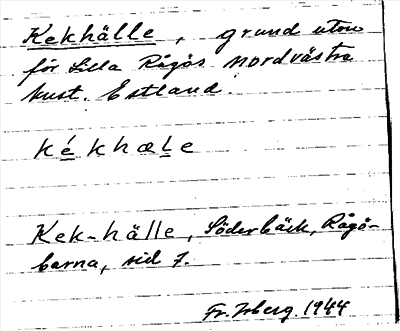 Kekhälle, grund utom
för Lilla Rågös nordvästra
kust. Estland.
kékhæle
Kek-hälle, Söderbäck, Rågö-
barna, sid 7.
Fr. Isberg. 1944